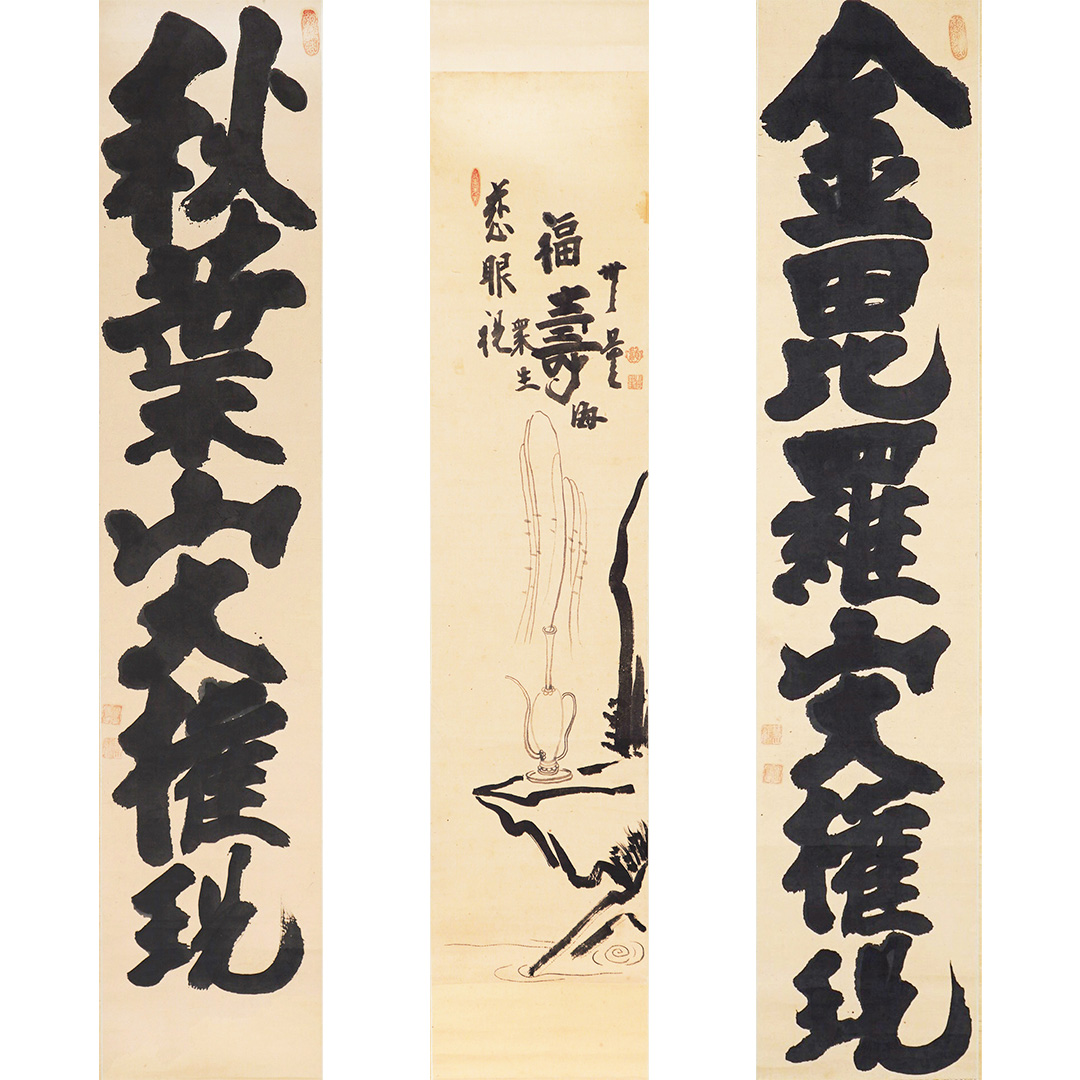 金毘羅山大権現
慈眼視
衆生
福壽海
無量
秋葉山大権現